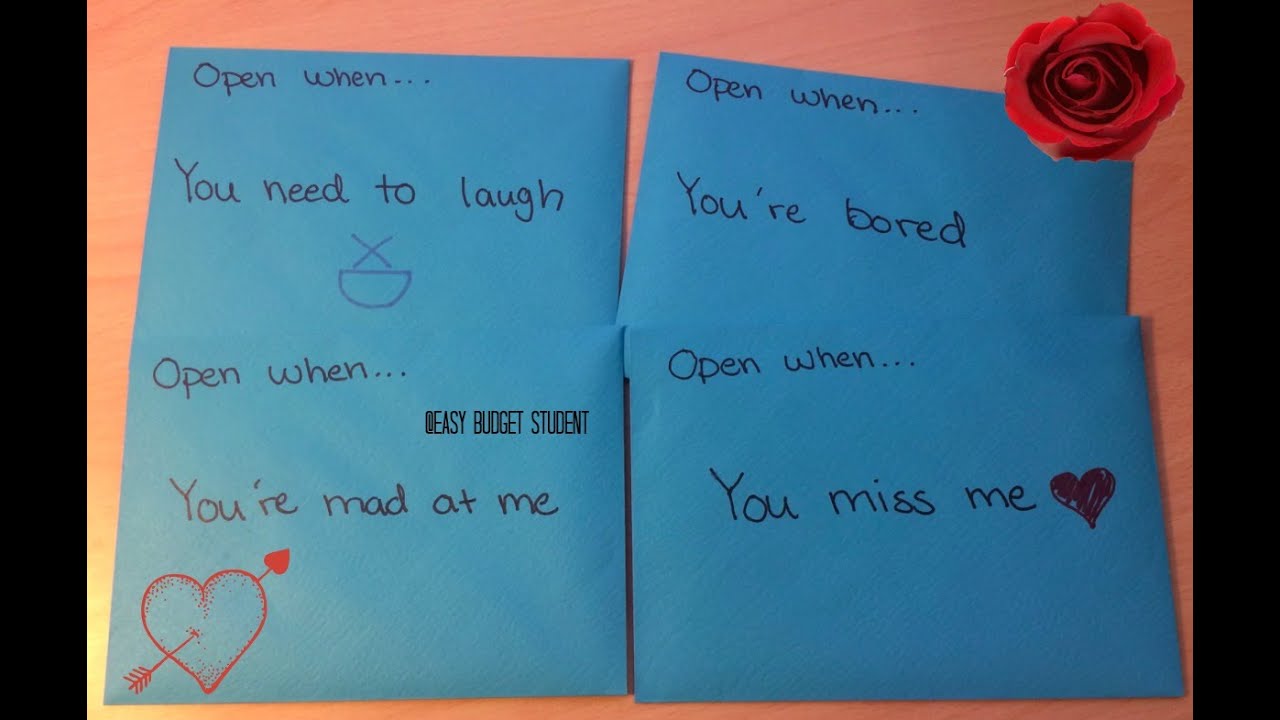 Open when...
You need to laugh
Open when...
You're bored
Open when...
@EASY BUDGET STUDENT
You're mad at me
Open when...
You miss me